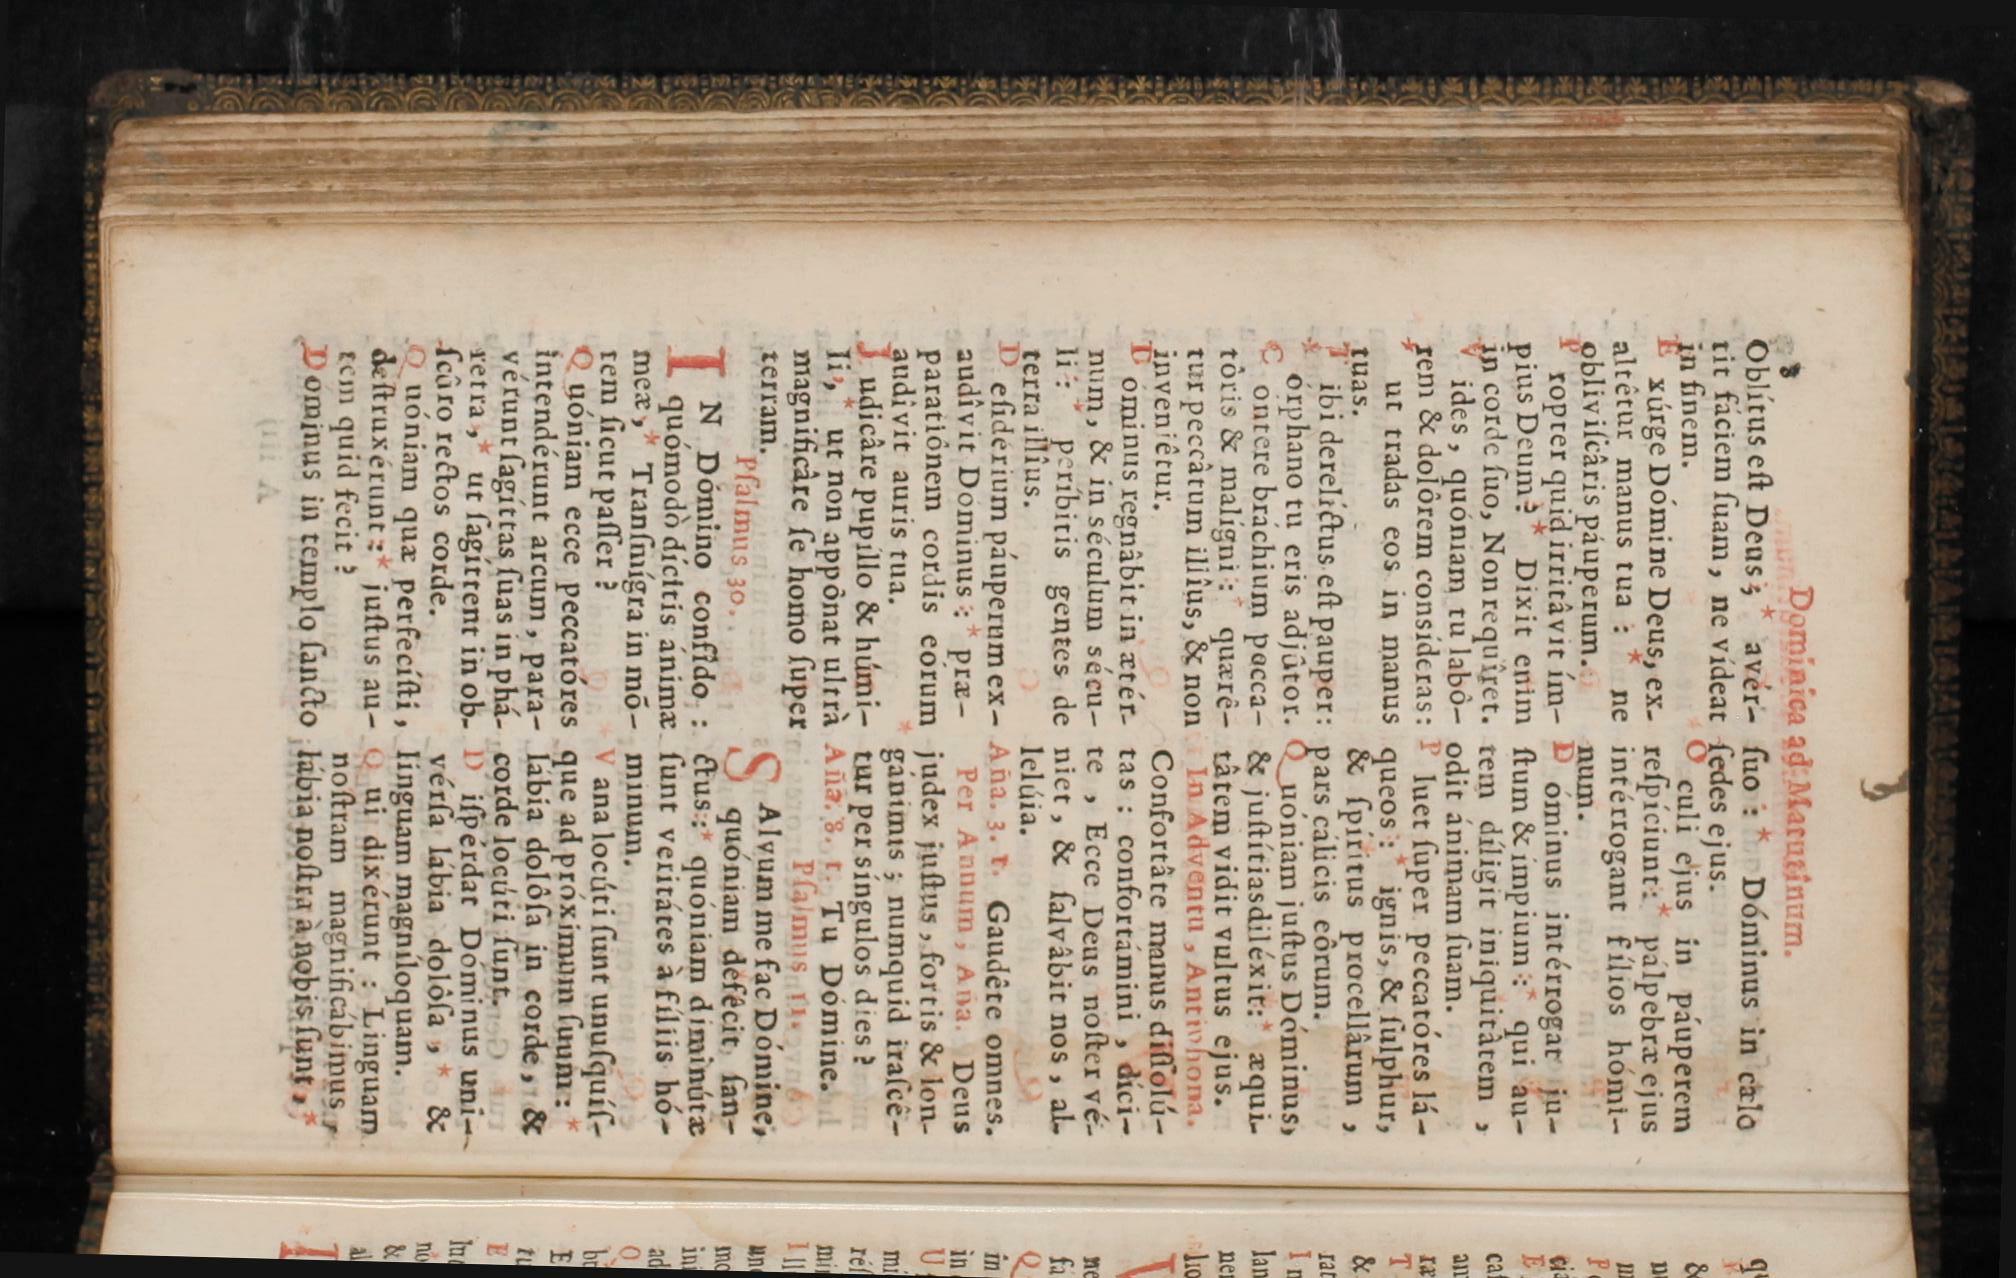 8
Dominica ad Matutínum.
Oblítus eſt Deus; * avér-
tit fáciem ſuam, ne vídeat
in finem.
E xúrge Dómine Deus, ex-
altêtur manus tua : * ne
obliviſcâris páuperum.
P ropter quid irritâvit ím-
pius Deum? * Dixit enim
in corde ſuo, Non requîret.
V ides, quóniam tu labô-
rem & dolôrem consíderas :
* ut tradas eos in manus
tuas.
T ibi derelíctus eſt pauper :
* órphano tu eris adjûtor.
C óntere bráchium pecca-
tôris & malígni : * quærê-
tur peccâtum illîus, & non
inveniêtur.
D óminus regnâbit in ætér-
num, & in séculum sécu-
li : * períbitis gentes de
terra illîus.
D eſidérium páuperum ex-
audîvit Dóminus : * præ-
paratiônem cordis eórum
audîvit auris tua.
J udicâre pupíllo & húmi-
li, * ut non appônat ultrà
magnificâre ſe homo ſuper
terram.
Pſalmus 30.
I N Dómino confído : *
quómodò dícitis ánimæ
meæ, * Tranſmígra in mō-
tem ſicut paſſer?
Q uóniam ecce peccatóres
intendérunt arcum, para-
vérunt ſagíttas ſuas in phá-
retra, * ut ſagíttent in ob-
ſcûro rectos corde.
Q uóniam quæ perfecíſti,
deſtruxérunt : * juſtus au-
tem quid fecit?
D óminus in templo ſancto
ſuo : * Dóminus in cælo
ſedes ejus.
O culi ejus in páuperem
reſpíciunt : * pálpebræ ejus
intérrogant fílios hómi-
num.
D óminus intérrogat ju-
ſtum & ímpium : * qui au-
tem díligit iniquitâtem,
odit ánimam ſuam.
P luet ſuper peccatóres lá-
queos : * ignis, & ſulphur,
& ſpíritus procellârum,
pars cálicis eôrum.
Q uóniam juſtus Dóminus,
& juſtítias diléxit : * æqui-
tâtem vidit vultus ejus.
In Adventu, Antiphona.
Confortâte manus diſſolú-
tas : confortámini, díci-
te, Ecce Deus noſter vé-
niet, & ſalvâbit nos, al-
lelúia.
Aña. 3. t. Gaudête omnes.
Per Annum, Aña. Deus
júdex juſtus, fortis & lon-
gánimis; numquid iraſcê-
tur per síngulos dies?
Aña. 8. t. Tu Dómine.
Pſalmus 11.
S Alvum me fac Dómine,
quóniam defêcit ſan-
ctus : * quóniam diminútæ
ſunt veritátes à fíliis hó-
minum.
V ana locúti ſunt unuſquíſ-
que ad próximum ſuum : *
lábia dolôſa in corde, &
corde locúti ſunt.
D iſpérdat Dóminus uni-
vérſa lábia dolôſa, * &
linguam magníloquam.
Q ui dixérunt : Linguam
noſtram magnificábimus,
lábia noſtra à nobis ſunt, *